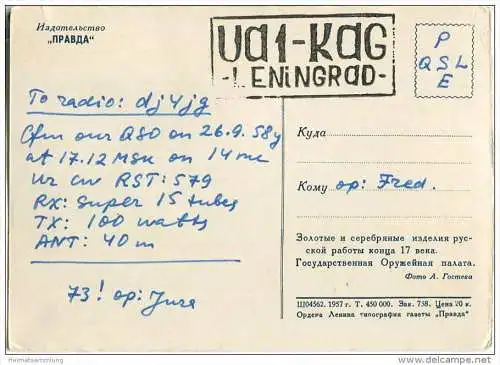 Издательство
„ПРАВДА“
UA1-KAG
-LENiNGRAD-
P
QSL
E
To radio: dj4jg
Cfm our QSO on 26.9.58y
at 17.12 MSK on 14 mc
Ur cw RST: 579
RX: Super 15 tubes
TX: 100 watts
ANT: 40 m
73! op: Jura
Куда
Кому op: Fred.
Золотые и серебряные изделия рус-
ской работы конца 17 века.
Государственная Оружейная палата.
Фото А. Гостева
Ш04562. 1957 г. Т. 450 000. Зак. 758. Цена 20 к.
Ордена Ленина типография газеты „Правда“
Heimatsammlung
delcampe.net